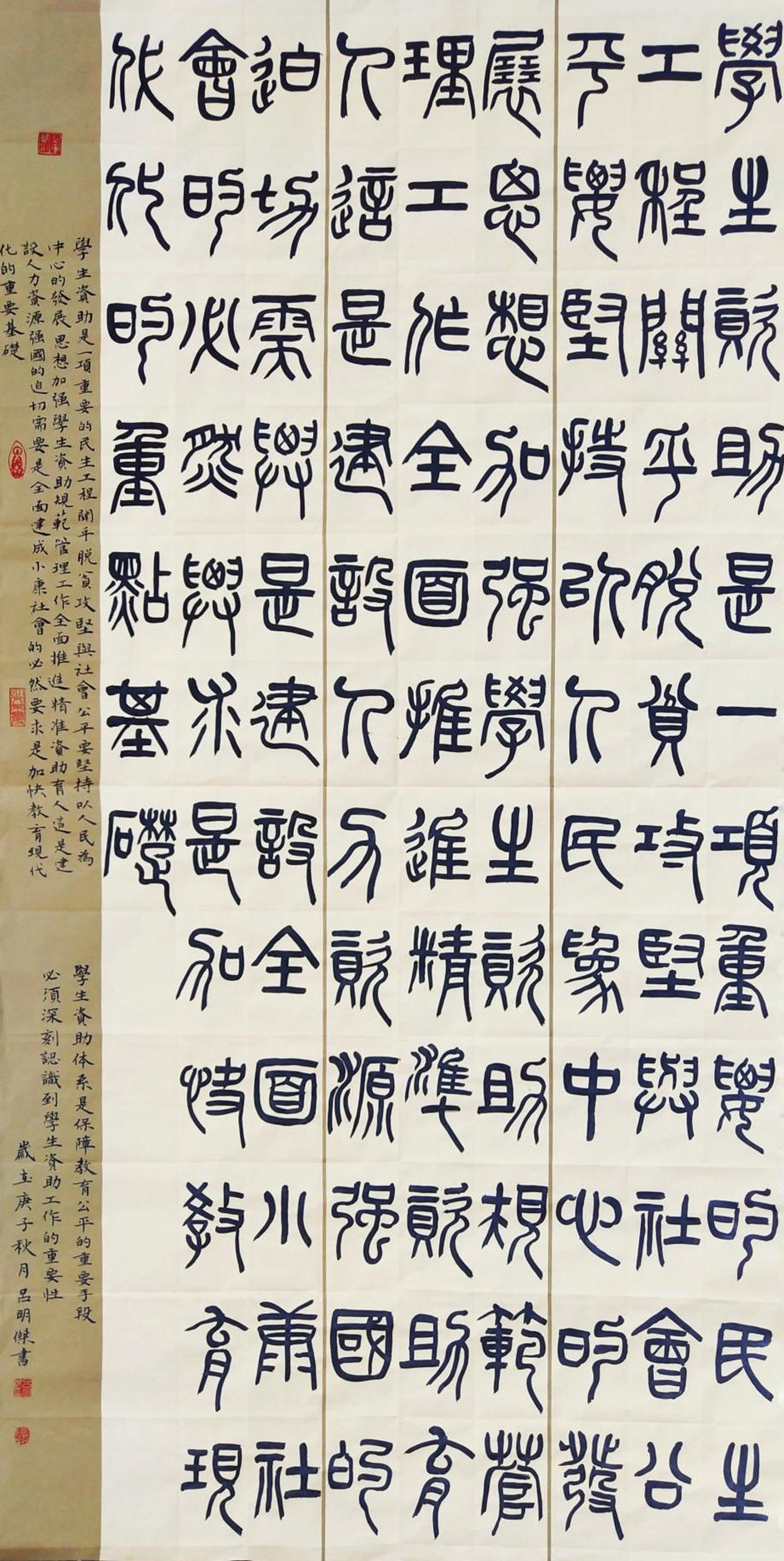 學生資助是一項重要的民生
工程關乎脫貧攻堅與社會公
平要堅持以人民為中心的發
展思想加强學生資助規範管
理工作全面推進精準資助育
人這是建設人力資源强國的
迫切需要是建設全面小康社
會的必然要求是加快教育現
代化的重點基礎
學生資助是一項重要的民生工程關乎脫貧攻堅與社會公平要堅持以人民為
中心的發展思想加强學生資助規範管理工作全面推進精准資助育人這是建
設人力資源强國的迫切需要是全面建成小康社會的必然要求是加快教育現代
化的重要基礎
學生資助体系是保障教育公平的重要手段
必須深刻認識到學生資助工作的重要性
歲在庚子秋月呂明傑書